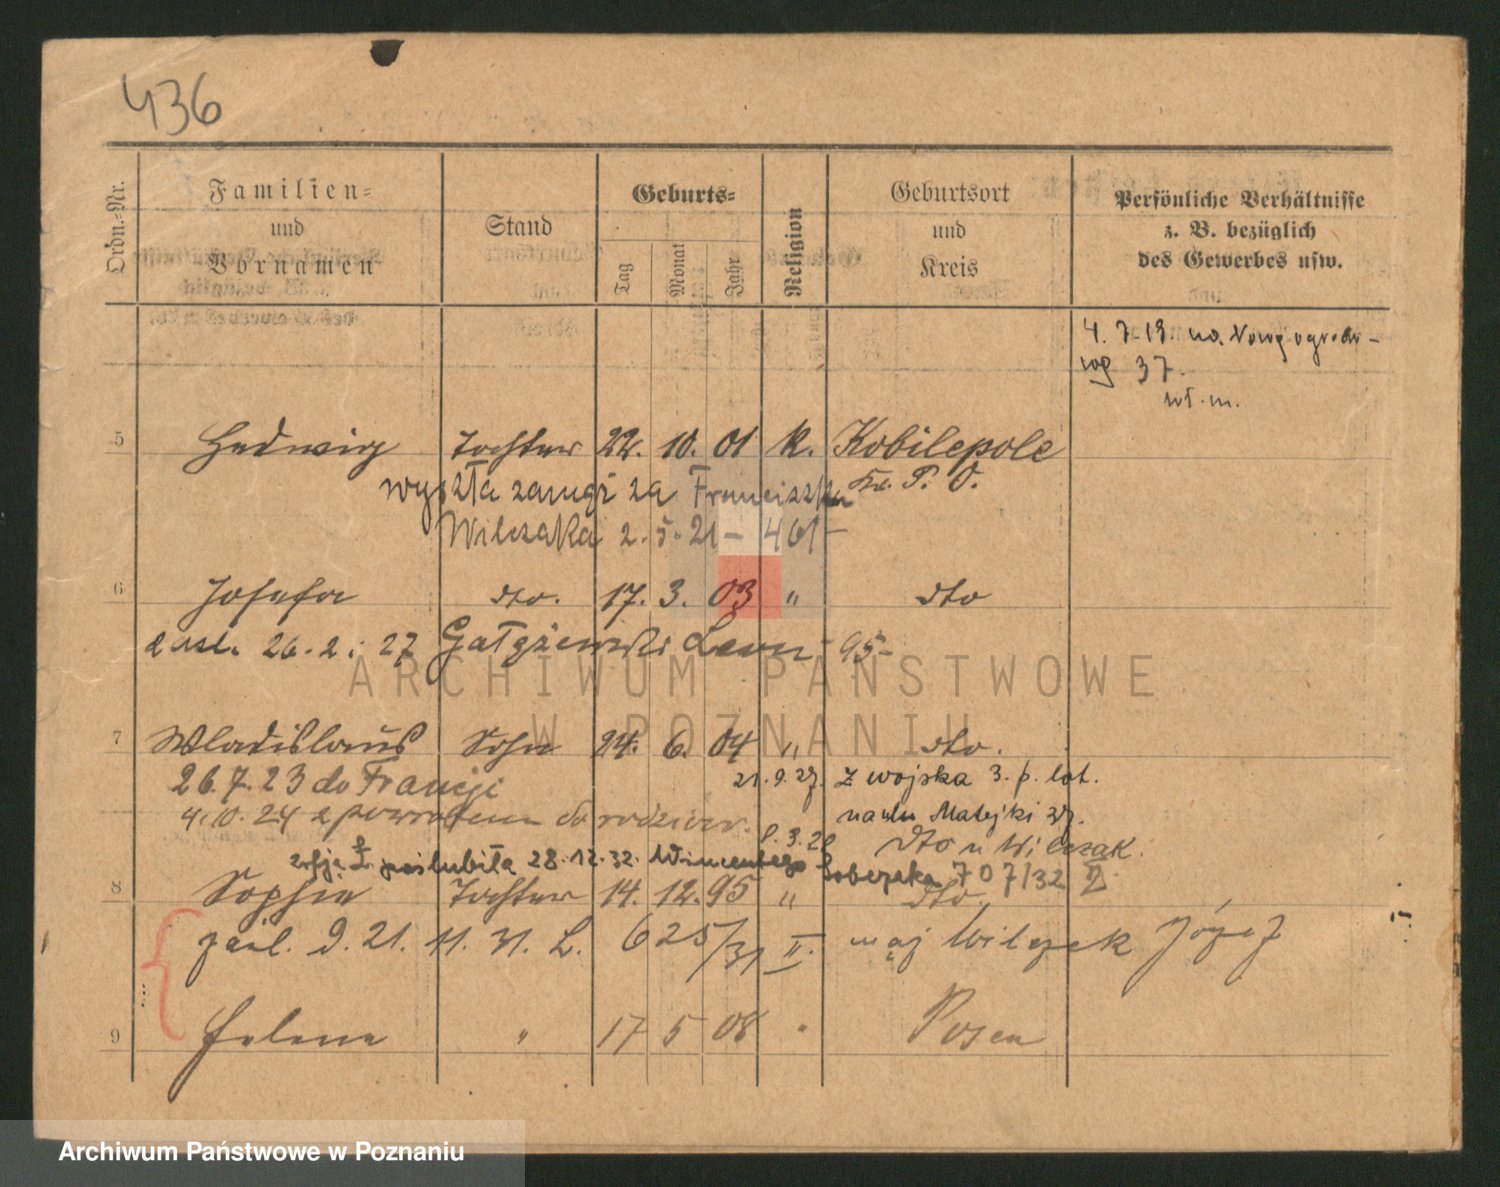 436
Ordn.-Nr.
Familien-
und
Vornamen
Stand
Geburts-
Tag
Monat
Jahr
Religion
Geburtsort
und
Kreis
Persönliche Verhältnisse
z. B. bezüglich
des Gewerbes usw.
4. 7. 13. na
37.
wł. m.
5 Hedwig Tochter 22. 10. 01 k. Kobilepole
Kr. P. O.
wyszła zamąż za Franciszka
Wilczaka 2. 5. 21 – 461 –
6 Josefa dto. 17. 3. 03 " dto
zasl. 26. 2. 27 Leon - 95 -
7 Wladislaus Sohn 24. 6. 04 " dto.
26. 7. 23 do Francji
21. 9. 27. z wojska 3. p. lot.
4. 10. 24 z powrotem do
na ulu Matejki 37.
8. 3. 28 dto u Wilczak.
poślubiła 28. 12. 32. Wincentego Sobczaka 707/32 II
8 Sophie Tochter 14. 12. 95 " dto.
zasl. d. 21. 11. 31. L. 625/31 II. mąż Wilczek Józef
9 Helene " 17 5 08 " Posen
ARCHIWUM PAŃSTWOWE
W POZNANIU
Archiwum Państwowe w Poznaniu